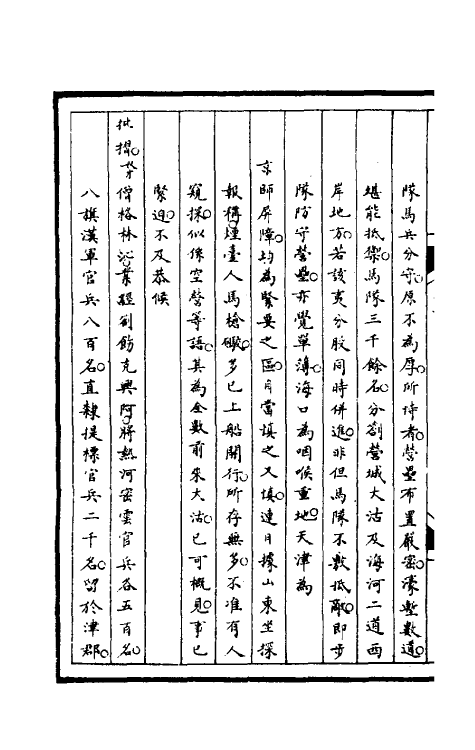 隊馬兵分守。原不為厚。所恃者。營壘布置嚴密。濠塹數道。
堪能抵禦。馬隊三千餘名。分劄營城大沽及海河二道西
岸地方。若該夷分股同時併進。非但馬隊不敷抵敵。即步
隊防守營壘。亦覺單薄。海口為咽喉重地。天津為
京師屏障。均為緊要之區。自當慎之又慎。連日據山東坐探
報稱。煙臺人馬槍礮。多已上船開行。所存無多。不准有人
窺探。似係空營等語。其為全數前來大沽。已可概見。事已
緊迫。不及恭候
批摺。僧格林沁業經劄飭克興阿。將熱河密雲官兵各五百名。
八旗漢軍官兵八百名。直隸提標官兵二千名。留於津郡。